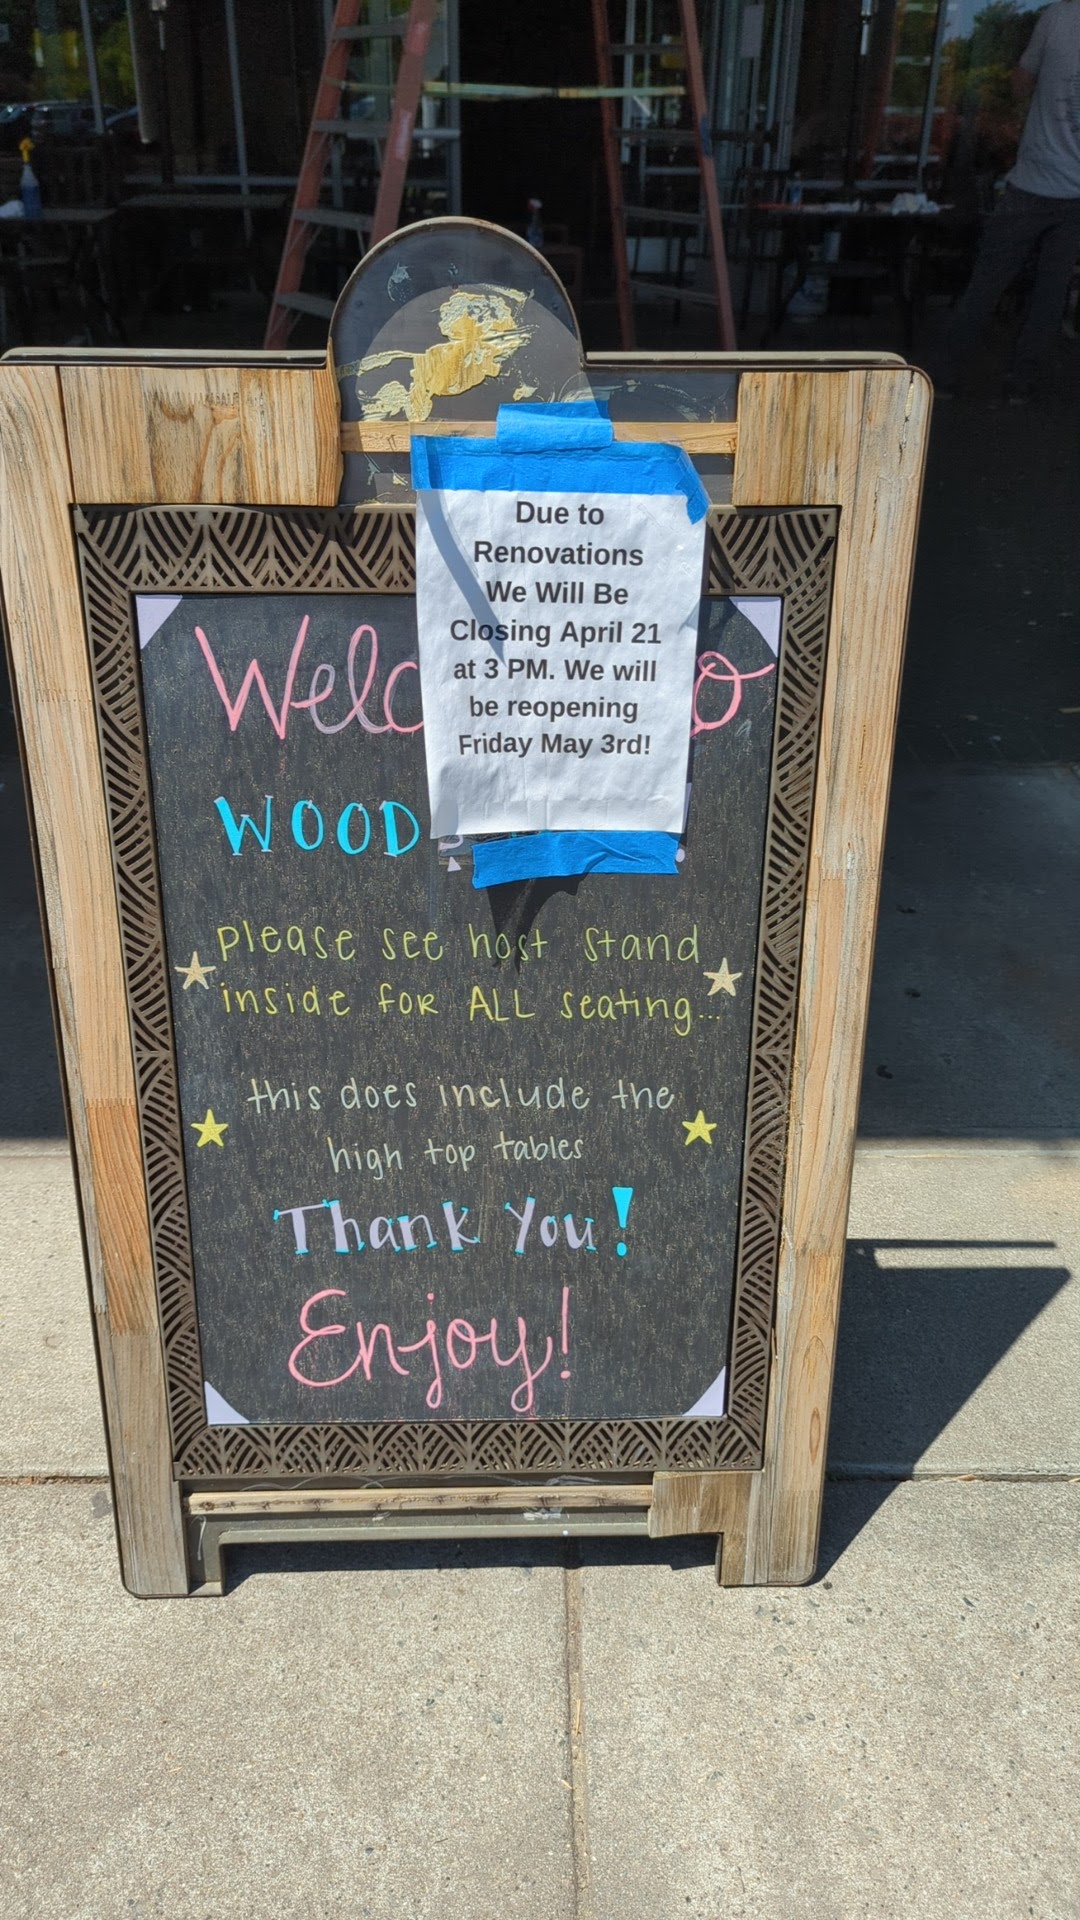 Due to
Renovations
We Will Be
Closing April 21
at 3 PM. We will
be reopening
Friday May 3rd!
please see host stand
inside for ALL seating...
this does include the
high top tables
Thank You!
Enjoy!